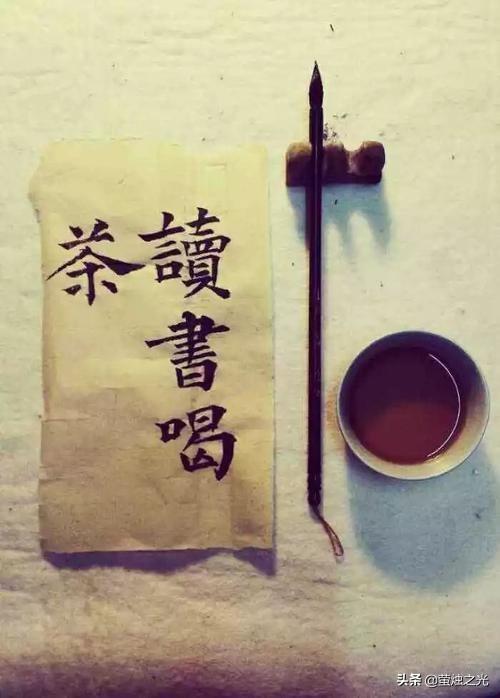 讀書喝
茶
头条 @萤烛之光